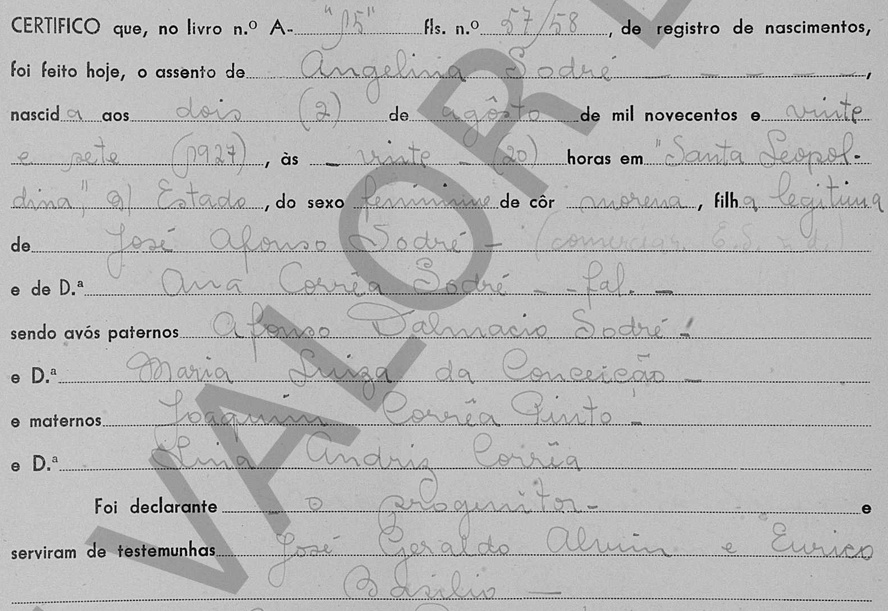 CERTIFICO que, no livro n.º A- "15" fls. n.º 57/58, de registro de nascimentos,
foi feito hoje, o assento de Angelina Sodré - - - -,
nascida aos dois (2) de agôsto de mil novecentos e vinte
e sete (1927), às - vinte - (20) horas em "Santa Leopol-
dina", d/ Estado, do sexo feminino de côr morena, filha legitima
de José Afonso Sodré - (comerciar E.S.
e de D.ª Ana Corrêa Sodré - - fal. -
sendo avós paternos Afonso Dalmacio Sodré -
e D.ª Maria Luiza da Conceição -
e maternos Joaquim Corrêa Pinto -
e D.ª Lina Corrêa
Foi declarante - o progenitor - e
serviram de testemunhas José Geraldo Alvim e Eurico
Basilio -
VALOR